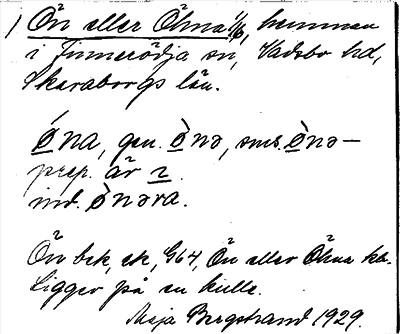 1) Ön eller Öhna 1/6, hemman
i Finnerödja sn, Vadsbo hd,
Skaraborgs län.
ȯ́na, gen. ȯ̀nə, sms. ȯ̀nə-
prep. är 2.
inb. ȯ̀nəra.
Ön bek, ek, G64, Ön eller Öhna kb.
Ligger på en kulle.
Maja Bergstrand 1929.